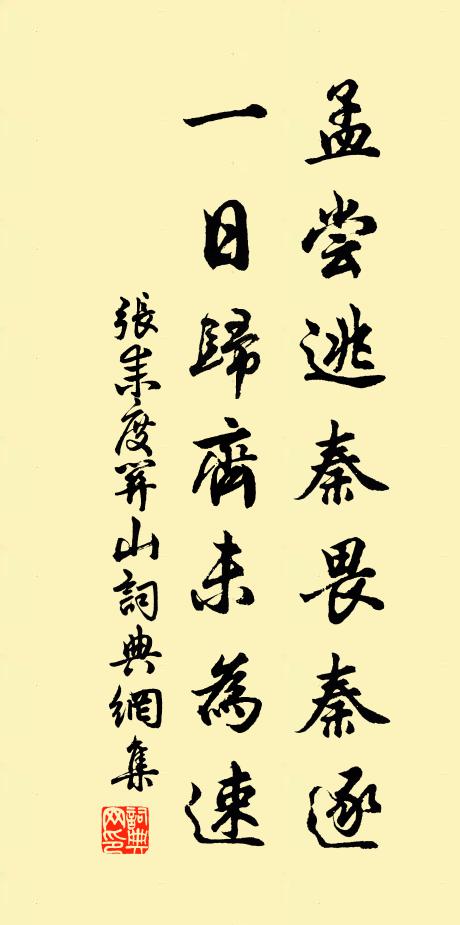 孟尝逃秦畏秦逐
一日歸齊未為速
張耒度關山詞典網集
詞典网印